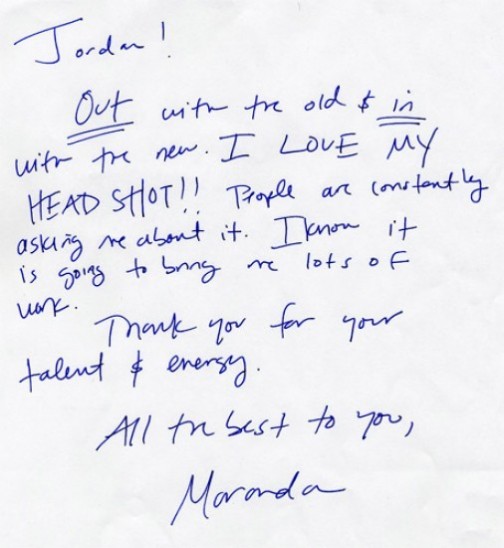 Jordan!
Out with the old & in
with the new. I LOVE MY
HEAD SHOT!! People are constantly
asking me about it. I know it
is going to bring me lots of
work.
Thank you for your
talent & energy.
All the best to you,
Maronda